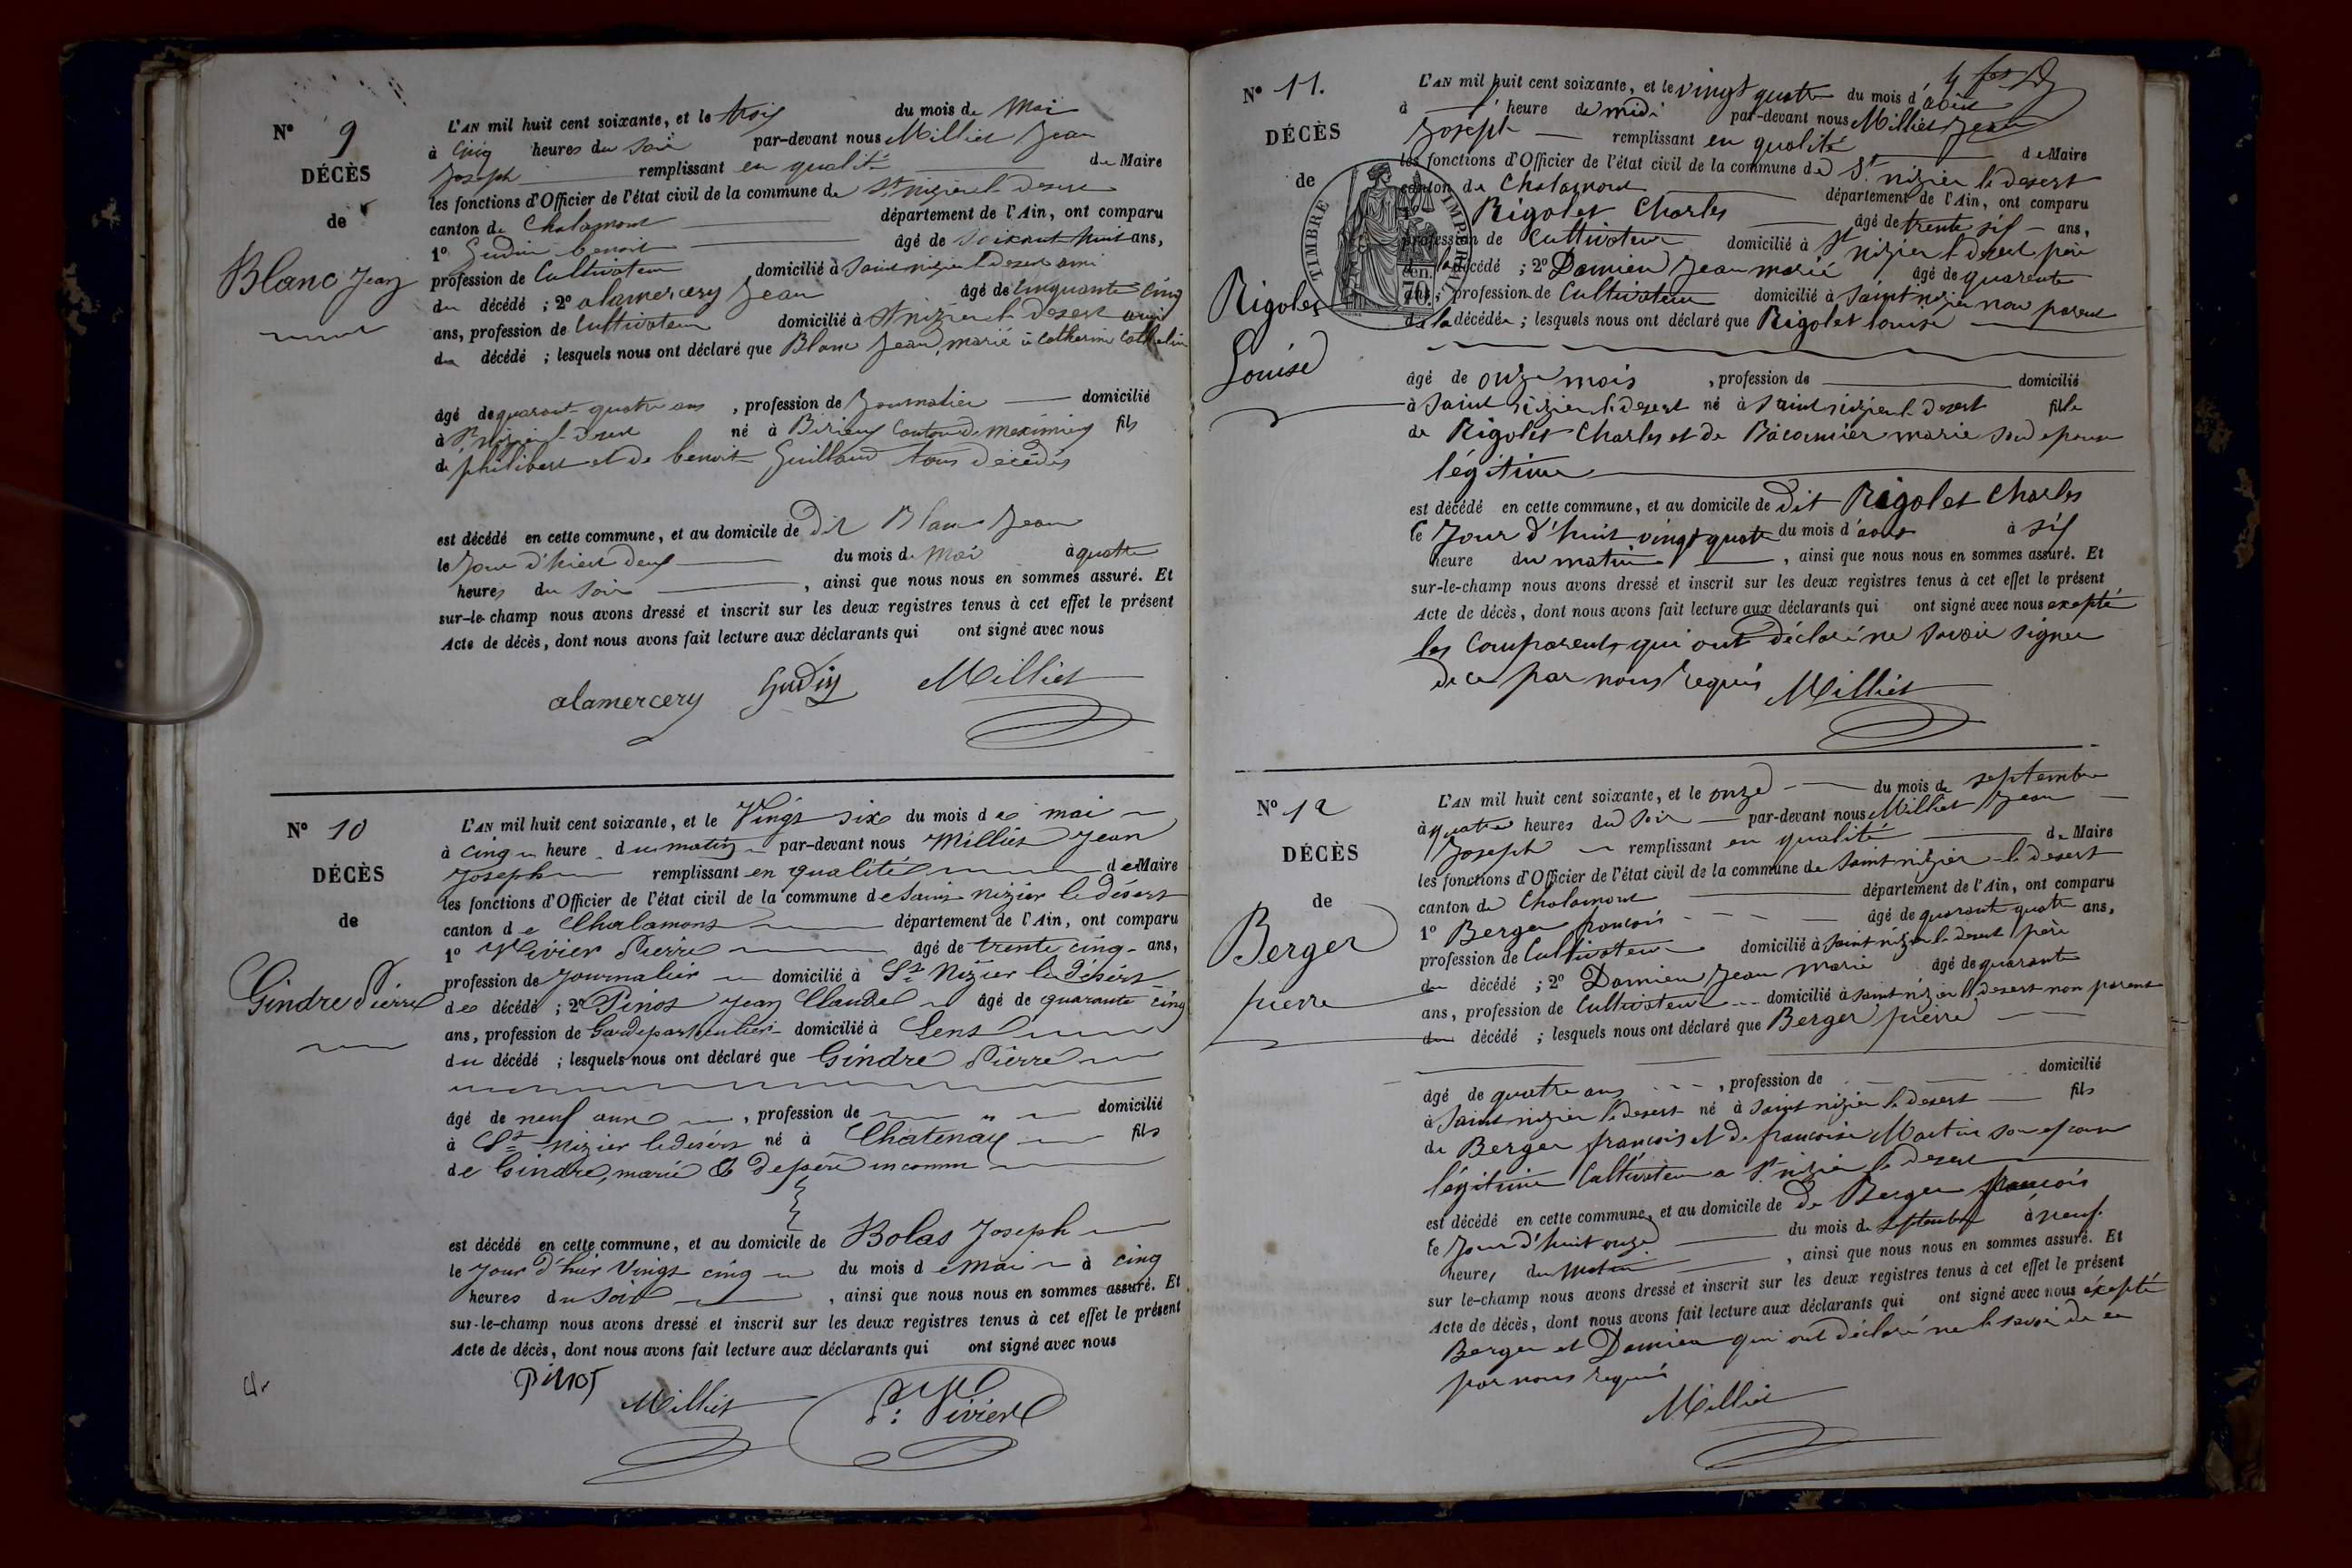 N° 9
DÉCÈS
de
Blanc Jean
L'AN mil huit cent soixante, et le trois du mois de Mai
à cinq heures du soir par-devant nous Milliet Jean
Joseph remplissant en qualité de Maire
les fonctions d'Officier de l'état civil de la commune de St nizier le desert
canton de Chalamont département de l'Ain, ont comparu
1° Gudin benoit âgé de soixante huit ans,
profession de Cultivateur domicilié à Saint nizier le desert ami
du décédé ; 2° alamercery Jean âgé de cinquante cinq
ans, profession de Cultivateur domicilié à St nizier le desert ami
du décédé ; lesquels nous ont déclaré que Blanc Jean, marié à Catherine Cathelin
âgé de quarante quatre ans, profession de Journalier domicilié
à St nizier le desert né à Birieux Canton de meximieux fils
de philibert et de benoite Guillaud tous décédés
est décédé en cette commune, et au domicile de dit Blanc Jean
le Jour d'hier deux du mois de Mai à quatre
heures du soir, ainsi que nous nous en sommes assuré. Et
sur-le-champ nous avons dressé et inscrit sur les deux registres tenus à cet effet le présent
Acte de décès, dont nous avons fait lecture aux déclarants qui ont signé avec nous
alamercery Gudin Milliet
N° 10
DÉCÈS
de
Gindre Pierre
L'AN mil huit cent soixante, et le Vingt six du mois de mai
à cinq heure du matin par-devant nous Milliet Jean
Joseph remplissant en qualité de Maire
les fonctions d'Officier de l'état civil de la commune de Saint Nizier le désert
canton de Chalamont département de l'Ain, ont comparu
1° Vivier Pierre âgé de trente cinq ans,
profession de Journalier domicilié à St Nizier le désert
de décédé ; 2° Pinot Jean Claude âgé de quarante cinq
ans, profession de Garde particulier domicilié à Lent
du décédé ; lesquels nous ont déclaré que Gindre Pierre
âgé de neuf ans, profession de " domicilié
à St Nizier le désert né à Chatenay fils
de Gindre, marie & de père inconnu
est décédé en cette commune, et au domicile de Bolas Joseph
le jour d'hier Vingt cinq du mois de Mai à cinq
heures du soir, ainsi que nous nous en sommes assuré. Et
sur-le-champ nous avons dressé et inscrit sur les deux registres tenus à cet effet le présent
Acte de décès, dont nous avons fait lecture aux déclarants qui ont signé avec nous
Pinot Milliet P: Vivier
N° 11.
DÉCÈS
de
Rigolet
Louise
TIMBRE IMPÉRIAL
70 cen.
L'AN mil huit cent soixante, et le vingt quatre du mois d'aout
à heure de midi par-devant nous Milliet Jean
Joseph remplissant en qualité de Maire
les fonctions d'Officier de l'état civil de la commune de St nizier le desert
canton de Chalamont département de l'Ain, ont comparu
1° Rigolet Charles âgé de trente six ans,
profession de Cultivateur domicilié à St nizier le desert père
de la décédé ; 2° Damien Jean marie âgé de quarante
ans, profession de Cultivateur domicilié à Saint nizier non parent
de la décédée ; lesquels nous ont déclaré que Rigolet louise
âgé de onze mois, profession de domicilié
à Saint nizier le desert né à Saint nizier le desert fille
de Rigolet Charles et de Bacounier marie son epouse
légitime
est décédé en cette commune, et au domicile de dit Rigolet Charles
le Jour d'huit vingt quatre du mois d'aout à six
heure du matin, ainsi que nous nous en sommes assuré. Et
sur-le-champ nous avons dressé et inscrit sur les deux registres tenus à cet effet le présent
Acte de décès, dont nous avons fait lecture aux déclarants qui ont signé avec nous exepté
les Comparents qui ont déclaré ne savoir signer
de ce par nous requis Milliet
N° 12
DÉCÈS
de
Berger
pierre
L'AN mil huit cent soixante, et le onze du mois de septembre
à quatre heures du soir par-devant nous Milliet Jean
Joseph remplissant en qualité de Maire
les fonctions d'Officier de l'état civil de la commune de Saint nizier le desert
canton de Chalamont département de l'Ain, ont comparu
1° Berger francois âgé de quarante quatre ans,
profession de Cultivateur domicilié à Saint nizier le desert père
du décédé ; 2° Damien Jean marie âgé de quarante
ans, profession de Cultivateur domicilié à Saint nizier le desert non parent
du décédé ; lesquels nous ont déclaré que Berger pierre
âgé de quatre ans, profession de domicilié
à Saint nizier le desert né à Saint nizier le desert fils
de Berger francois et de francoise Martin son epouse
légitime Cultivateur a St nizier le desert
est décédé en cette commune, et au domicile de de Berger francois
le Jour d'huit onze du mois de septembre à neuf
heures du matin, ainsi que nous nous en sommes assuré. Et
sur le-champ nous avons dressé et inscrit sur les deux registres tenus à cet effet le présent
Acte de décès, dont nous avons fait lecture aux déclarants qui ont signé avec nous éxepté
Berger et Damien qui ont déclaré ne le savoir de ce
par nous requis
Milliet